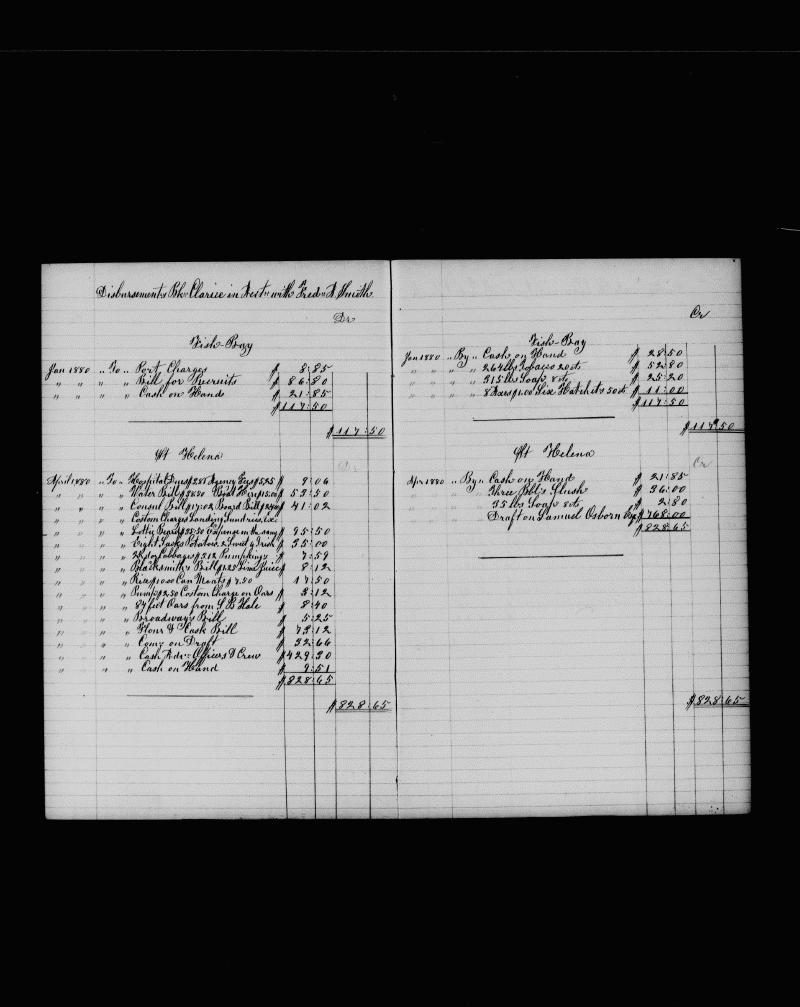 Disbursements Bk Clarice in Acct with Fred A Smith
Dr
Fish Bay
Jan 1880 " To " Port Charges $ 8:85
" " " " Bill for Recruits $ 86:80
" " " " Cash on Hand $ 21:85
$117:50
$117:50
St Helena
Dr
April 1880 " To " Hospital Dues $2.81 Agency Fees $5.25 $ 9:06
" " " " Water Bill $38.50 Boat Hire $15.00 $ 53:50
" " " " Consul Bill $17.02 Board Bill $24.00 $ 41:02
" " " " Costom Charges Landing Sundries, &c
" " " " Lotty Beard $28.50 Expence in the same $ 95:50
" " " " Eight Sacks Potatoes, 2 Sweet 6 Irish $ 35:00
" " " " Cabbages $2.12 Pumpkings $ 7:59
" " " " Blacksmith's Bill $1.25 Lime Juice $ 8:12
" " " " Rice $10.00 Can Meats $7.50 17:50
" " " " Pump $2.50 Costom Charge on Oars $ 3:12
" " " " 84 feet Oars from S B Hale $ 8:40
" " " " Broadway's Bill $ 5:25
" " " " Flour & Cask Bill $ 73:12
" " " " Comy on Draft $ 32:66
" " " " Cash Adv Officers & Crew $429:30
" " " " Cash on Hand $ 9:51
$828:65
$828:65
Cr
Fish Bay
Jan 1880 " By " Cash on Hand $ 28:50
" " " " 264 lbs Tobacco 20cts $ 52:80
" " " " 315 lbs Soap 8cts $ 25:20
" " " " 8 Axes $1.00 Six Hatchets 50cts $ 11:00
$117:50
$117:50
St Helena
Cr
Apr 1880 " By " Cash on Hand $ 21:85
" " " " Three Bbls Slush $ 36:00
" " " " 35 lbs Soap 8cts $ 2:80
" " " " Draft on Samuel Osborn $768:00
$828:65
$828:65